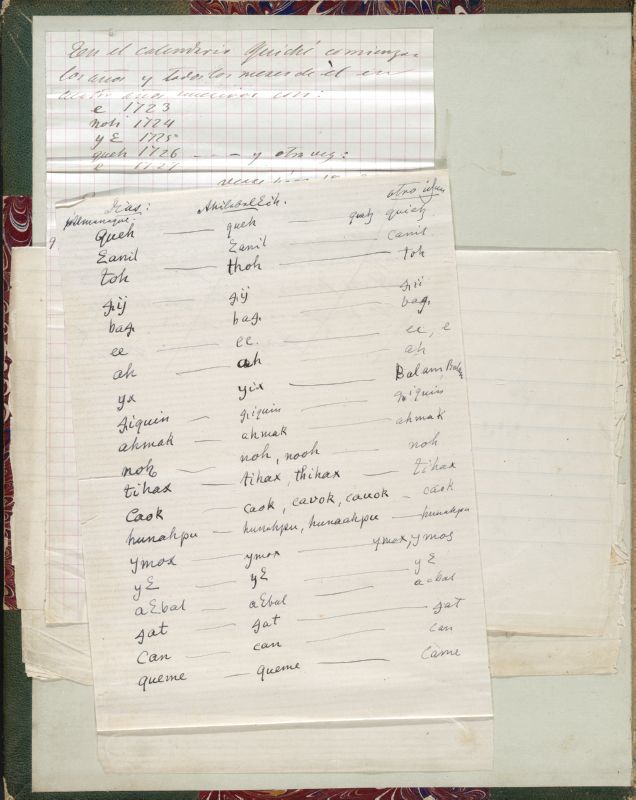 En el calendario Quiché comienzan
los años y todos los meses de él en
e 1723
noh 1724
yƐ 1725
queh 1726 ---- y otra vez:
e 1727
Dias: Ahilabal Εih. otro idem
Almanaque:
Queh — queh quej quieh
Ɛanil — Ɛanil — canil
toh — thoh — toh
ꜫij — ꜫij — ꜫij
baꜫ — baꜫ — baꜫ
ee — ee. — ee, e
ah — ah — ah
yx — yix — Balam, Balam
ꜫiquin — ꜫiquin — ꜫiquin
ahmak — ahmak — ahmak
noh — noh, nooh — noh
tihax — tihax, thihax — tihax
Caok — caok, cavok, cauok — caok
hunahpu — hunahpu, hunaahpu — hunahpu
ymox — ymox — ymox, ymos
yƐ — yƐ — yƐ
aƐbal — aƐbal — acbal
ꜫat — ꜫat — ꜫat
Can — can — can
queme — queme — Came